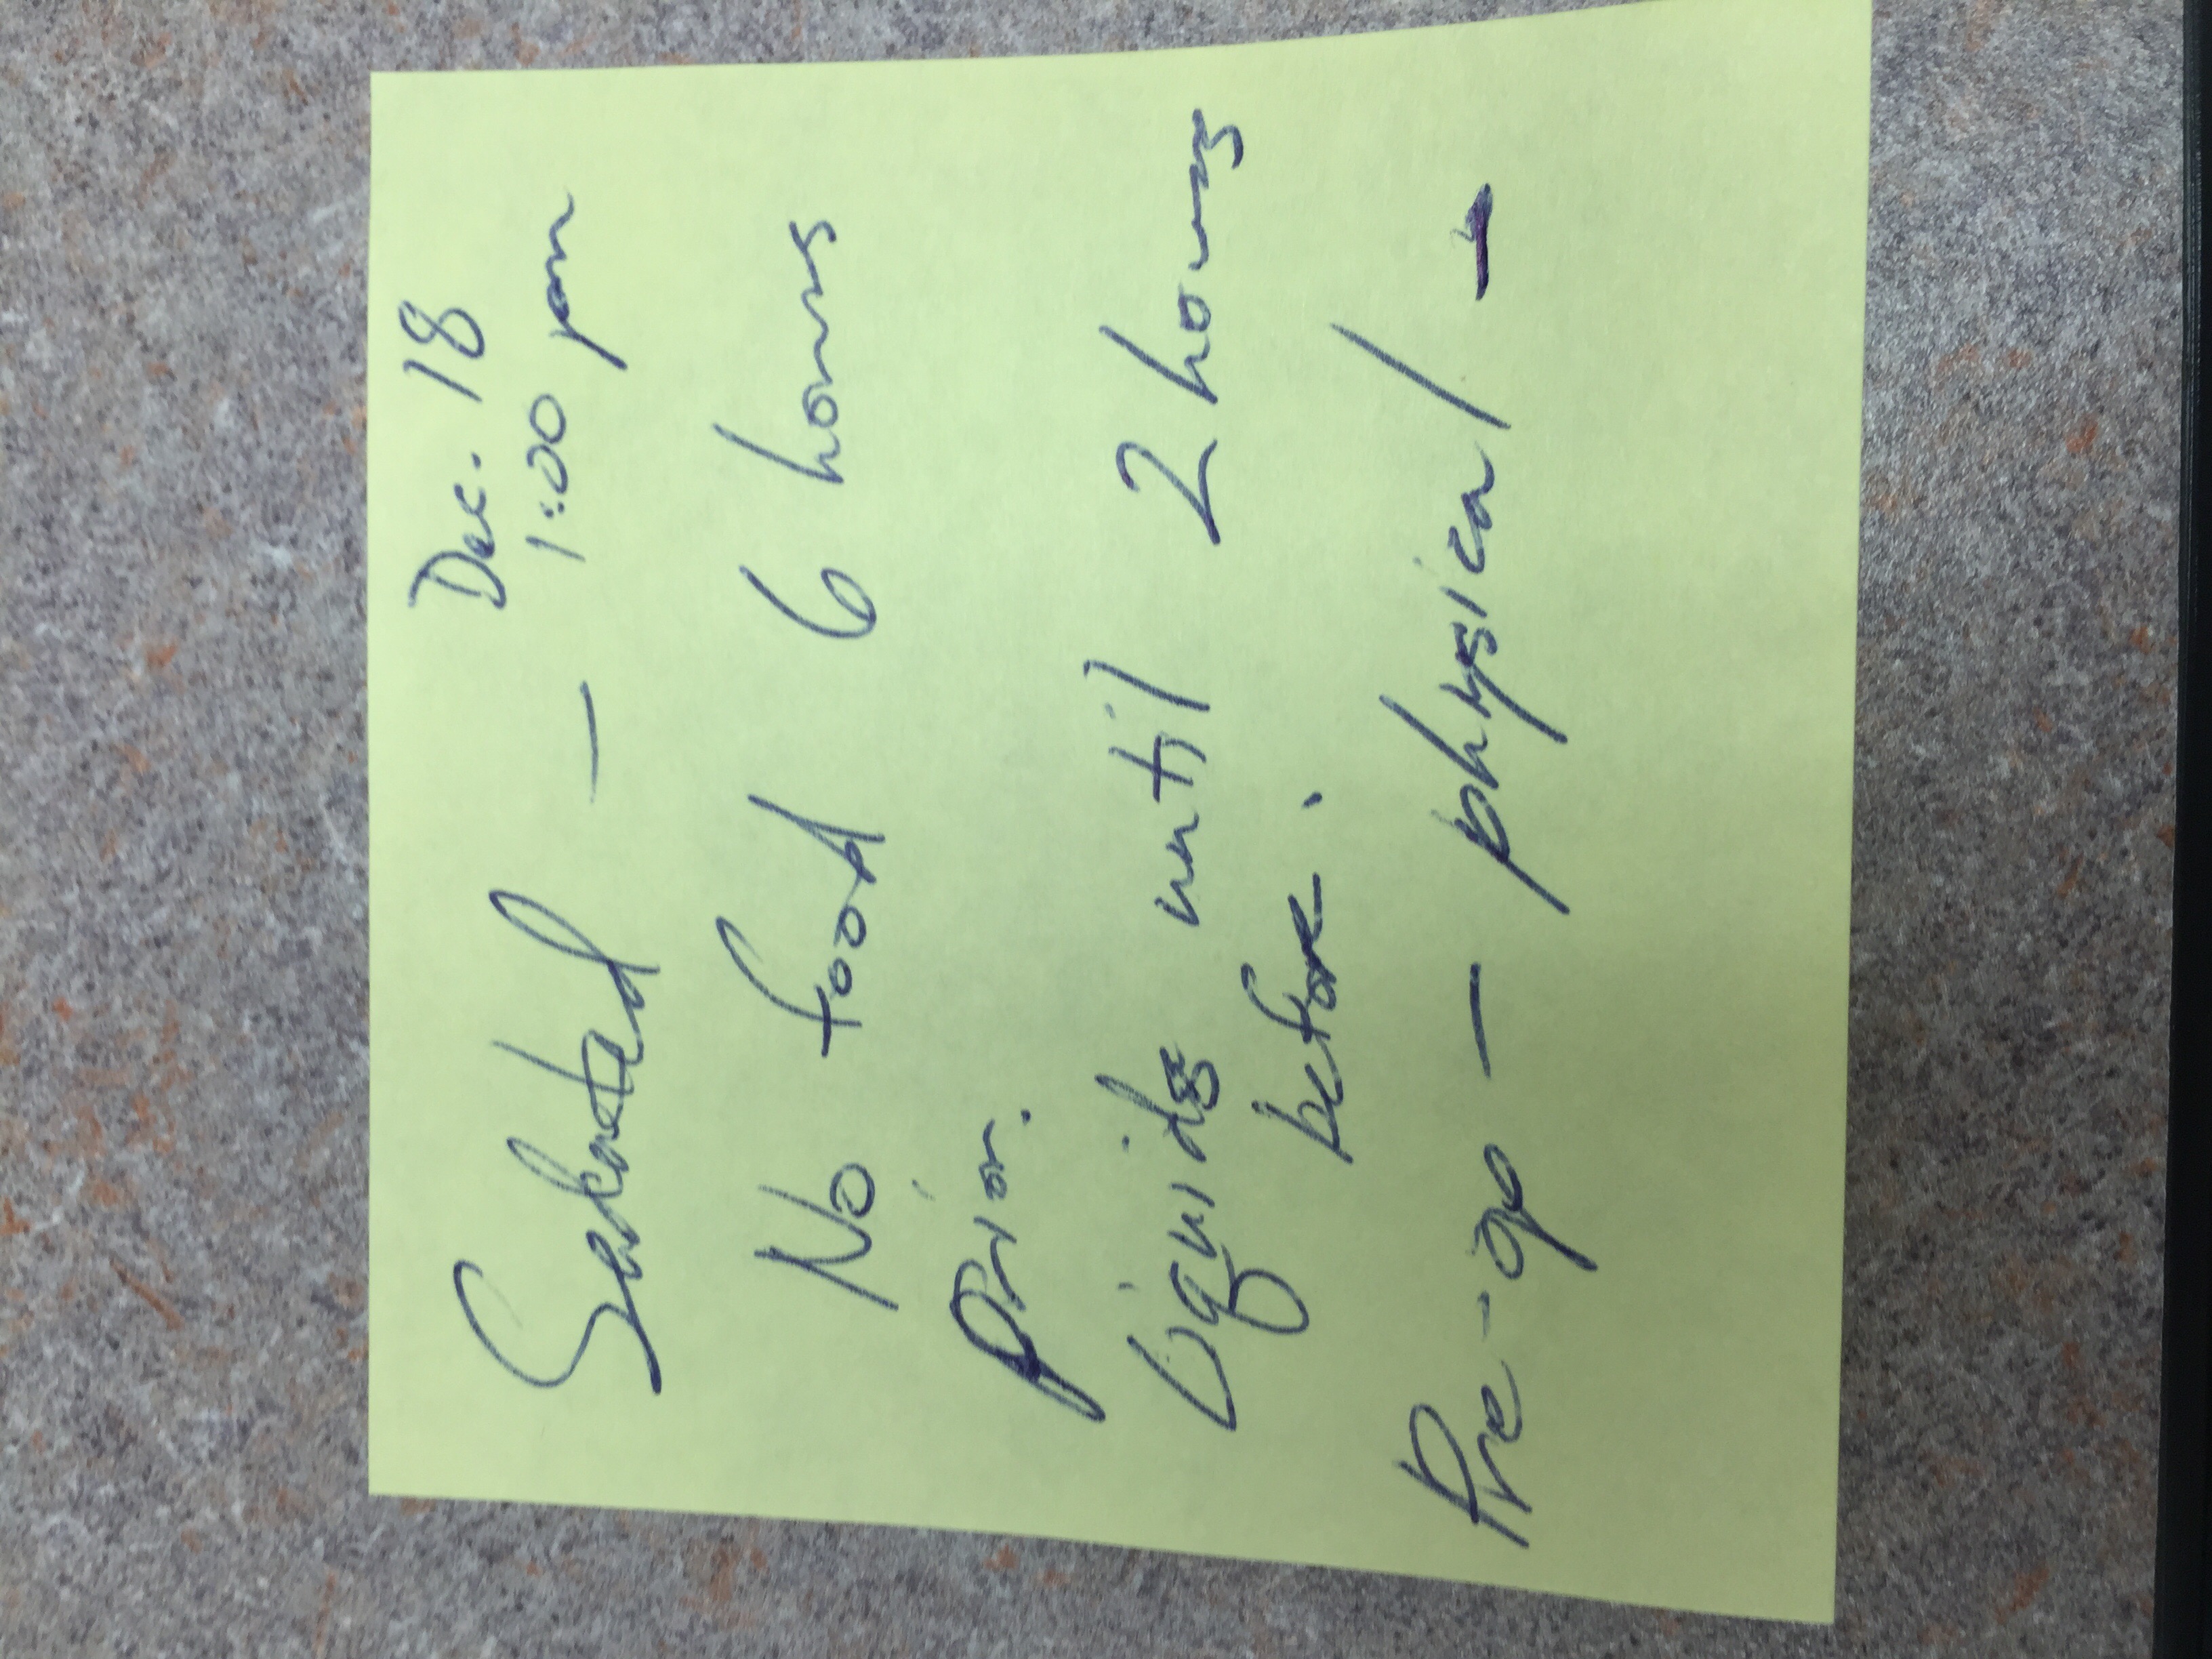 Dec. 18
Sedated — 1:00 pm
No food 6 hours
prior.
Liquids until 2 hours
before.
Pre-op — physical –